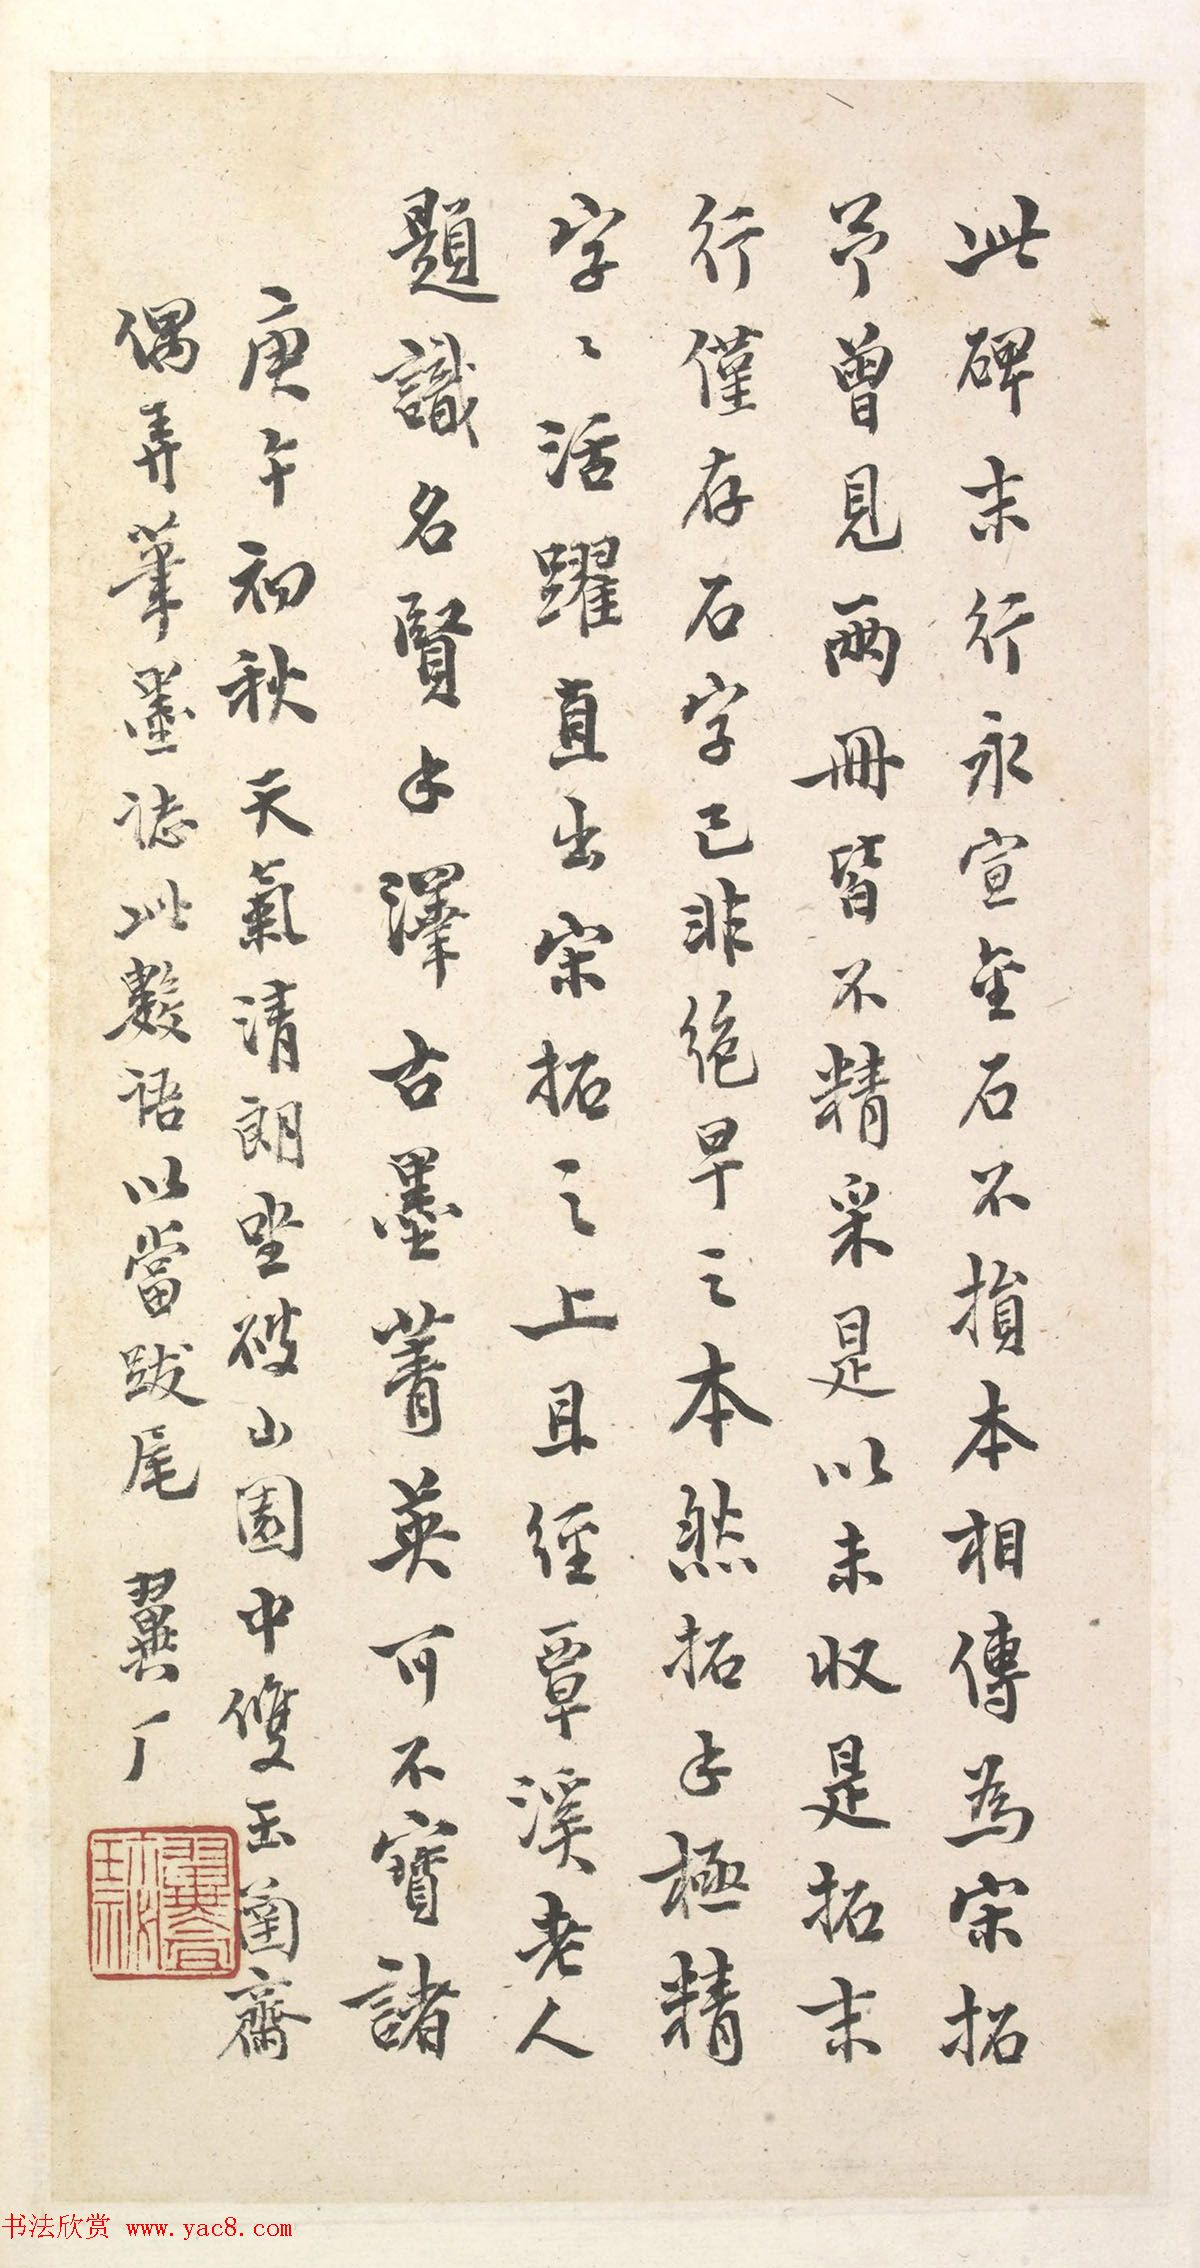 此碑末行永宣金石不損本相傳為宋拓
予曾見兩冊皆不精采是以未收是拓末
行僅存石字已非絕早之本然拓手極精
字〻活躍直出宋拓之上且經覃溪老人
題識名賢手澤古墨菁英可不寶諸
庚午初秋天氣清朗坐破山園中雙玉蘭齋
偶弄筆墨誌此數語以當跋尾 翼厂
书法欣赏 www.yac8.com